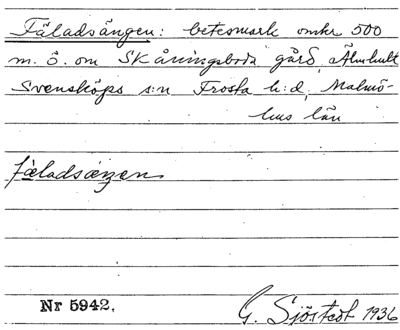 Fäladsängen: betesmark omkr 500
m. ö. om Skåningsboda gård, Älmhult
Svensköps s:n Frosta h:d, Malmö-
hus län
fäladsæŋen
Nr 5942.
G. Sjöstedt 1936